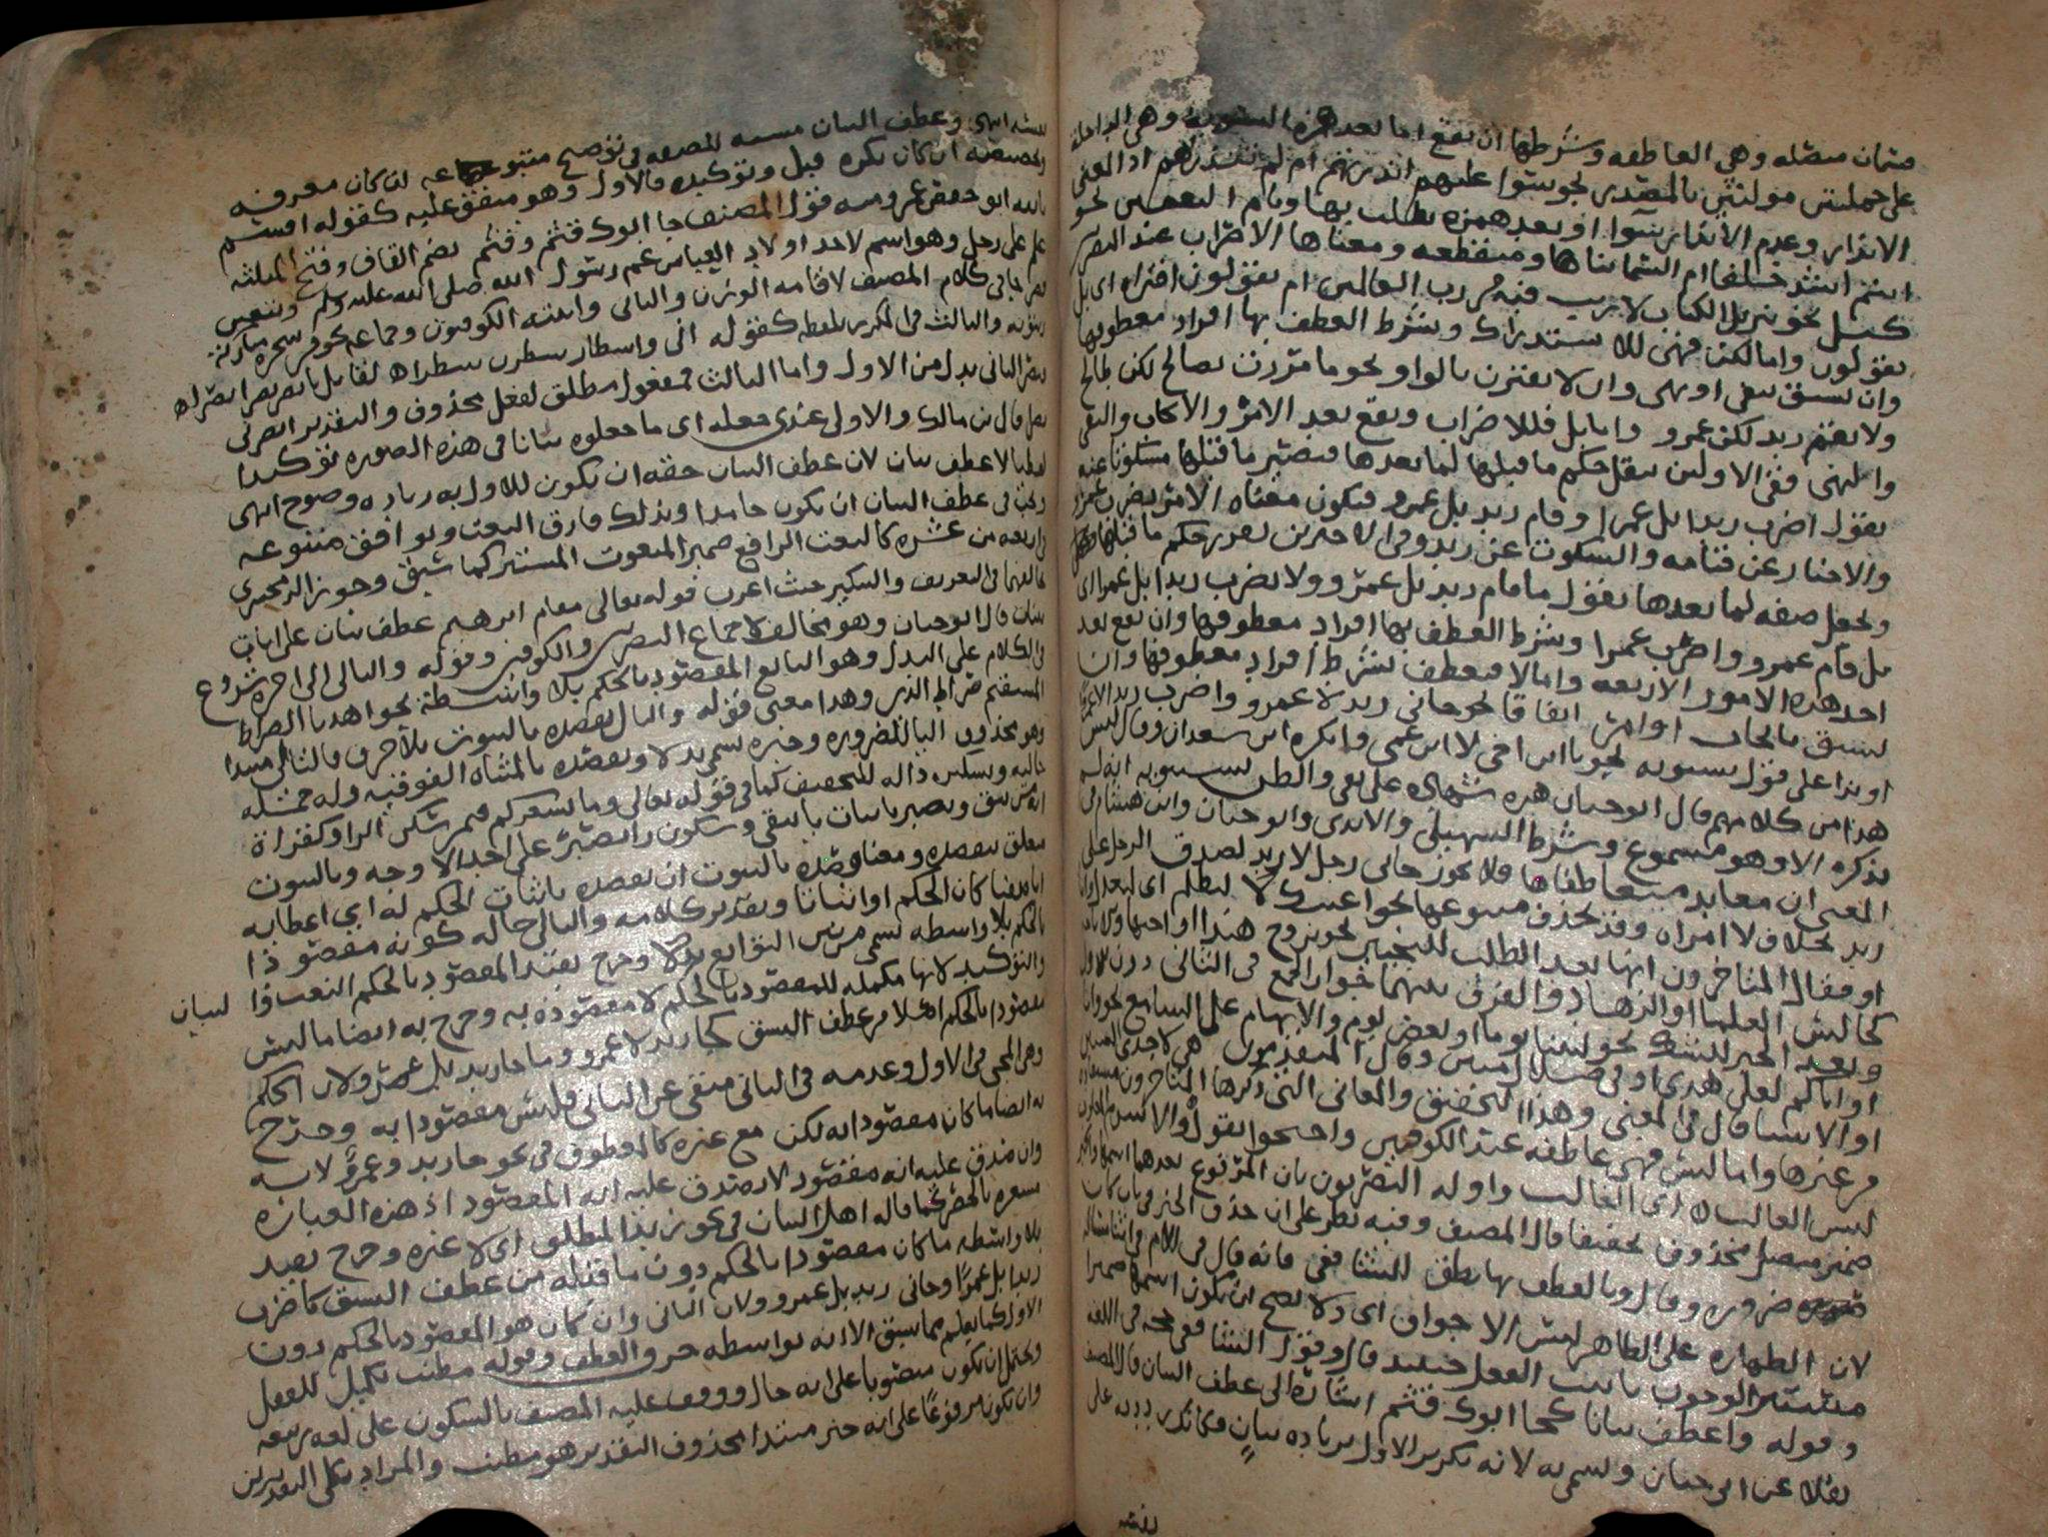 قسمان متصله وهي العاطفه وشرطها ان تقع اما بعد همزه التسويه وهي الداخله
على جملتين مولتين بالمصدر نحو سوا عليهم انذرتهم ام لم تنذرهم اذ المعنى
الانذار وعدم الانذار سوا او بعد همزه يطلب بها وبام التعيين نحو
انتم اشد خلقا ام السما بناها ومنقطعه ومعناها الاضراب عند البصر
كبل نحو تنزيل الكتاب لا ريب فيه من رب العالمين ام يقولون افتراه اى بل
يقولون واما لكن فهي للاستدراك وشرط العطف بها افراد معطوفها
وان تسبق بنفي او نهى وان لا تقترن بالواو نحو ما مررت بصالح لكن طالح
ولا يقم زيد لكن عمرو واما بل فللاضراب وتقع بعد الامر والايجاب والنفى
والنهى ففي الاولين تنقل حكم ما قبلها لما بعدها فيصير ما قبلها مسكوتا عنه
تقول اضرب زيدا بل عمرا وقام زيد بل عمرو فيكون معناه الامر بضرب عمرو
والاخبار عن قيامه والسكوت عن زيد وفي الاخيرين تقرر حكم ما قبلها
وتجعل ضده لما بعدها تقول ما قام زيد بل عمرو ولا تضرب زيدا بل عمرا اى
بل قام عمرو واضرب عمرا وشرط العطف بها افراد معطوفها وان تقع بعد
احد هذه الامور الاربعه واما لا فيعطف بشرط افراد معطوفها وان
تسبق بايجاب او امر اتفاقا نحو جاني زيد لا عمرو واضرب زيدا لا عمرا
او ندا على قول سيبويه نحو يا ابن اخى لا ابن عمى وانكره ابن سعدان وقال ليس
هذا من كلامهم قال ابو حيان هذه شهاده على نفي والظن بسيبويه انه لم
يذكره الا وهو مسموع وشرط السهيلى والابدى وابو حيان وابن هشام في
المغنى ان تعاند متعاطفاها فلا يجوز جانى رجل لا زيد لصدق الرجل على
زيد بخلاف لا امراه وقد تحذف متبوعها نحو اعبدك لا لتظلم اى لتعدل واما
او فقال المتاخرون انها بعد الطلب للتخيير نحو تزوج هندا او اختها وللاباحه
كجالس العلما او الزهاد والفرق بينهما جواز الجمع في الثانى دون الاول
وبعد الخبر للشك نحو لبثنا يوما او بعض يوم والابهام على السامع نحو وانا
او اياكم لعلى هدى او في ضلال مبين وقال المتقدمون هي لاحدى الشيئين
او الاشيا قال في المغنى وهذا التحقيق والمعانى التى ذكرها المتاخرون مستفاده
من غيرها واما ليس فهى عاطفه عند الكوفيين واحتجوا بقوله والاشرم المغلوب
ليس الغالب اى الغالب واوله البصريون بان المرفوع بعدها اسمها والخبر
ضمير متصل محذوف تخفيفا قال المصنف وفيه نظر على ان حذف الخبر في باب كان
ضروره وقال وبالعطف بها نطق للشافعى فانه قال في الام في اثنا مساله
لان الطهاره على الظاهر ليس الاجواف اى ولا يصح ان يكون اسمها ضميرا
مستترا لوجوب تانيث الفعل حينئذ قال وقول الشافعى حجه في اللغه
وقوله واعطف بيانا كجا ابوك قثم اشاره الى عطف البيان قال المصنف
نقلا عن ابى حيان وسمى به لانه تكرير الاول بزياده بيان فكانك رددته على
نفسه
نفسه انتهى وعطف البيان مشبه للصفه في توضيح متبوعه ان كان معرفه
وتخصيصه ان كان نكره قيل وتوكيده فالاول وهو متفق عليه كقوله اقسم
بالله ابو حفص عمر ومنه قول المصنف جا ابوك قثم وقثم بضم القاف وفتح المثلثه
علم على رجل وهو اسم لاحد اولاد العباس عم رسول الله صلى الله عليه وسلم وتنعين
قصر جا في كلام المصنف لاقامه الوزن والثانى واثبته الكوفيون وجماعه نحو من شجره مباركه
زيتونه والثالث في المكرر بلفظه كقوله انى واسطار سطرن سطرا لقايل يا نصر نصر نصرا
نصر الثانى بدل من الاول واما الثالث فمفعول مطلق لفعل محذوف والتقدير انصرنى
نصرا قال بن مالك والاولى عندى جعله اى ما جعلوه بيانا في هذه الصوره توكيدا
لفظيا لا عطف بيان لان عطف البيان حقه ان يكون للاول به زياده وضوح انتهى
ويجب في عطف البيان ان يكون جامدا وبذلك فارق النعت ويوافق متبوعه
في اربعه من عشره كالنعت الرافع ضمير المنعوت المستتر كما سبق وجوز الزمخشرى
تخالفهما في التعريف والتنكير حيث اعرب قوله تعالى مقام ابرهيم عطف بيان على ايات
بينات قال ابو حيان وهو مخالف لاجماع البصريين والكوفيين وقوله والتالى الى اخره شروع
في الكلام على البدل وهو التابع المقصود بالحكم بلا واسطه نحو اهدنا الصراط
المستقيم صراط الذين وهذا معنى قوله والتال بقصده بالثبوت بلا حرف فالتالى مبتدا
وهو محذوف اليا للضروره وخبره سمى بدلا وبقصده بالمثناه الفوقيه وله جمله
حاليه وتسكين داله للتخفيف كما في قوله تعالى وما يشعركم فيمن سكن الرا وكقراة
انه من يتق ويصبر باثبات يا يتقى وسكون را يصبر على احد الاوجه وبالثبوت
متعلق بقصده ومعنا قصده بالثبوت ان تقصده باثبات الحكم له اى اعطايه
اياه نفيا كان الحكم او اثباتا وتقدير كلامه والتالى حاله كونه مقصودا
بالحكم بلا واسطه سمى من بين التوابع بدلا وخرج بقيد المقصود بالحكم النعت والبيان
والتوكيد لانها مكمله للمقصود بالحكم لا مقصوده به وخرج به ايضا ما ليس
مقصودا بالحكم اصلا من عطف النسق كجا زيد لا عمرو وما جا زيد بل عمرو لان الحكم
وهو المجى في الاول وعدمه في الثانى منتفى عن الثانى فليس مقصودا به وخرج
به ايضا ما كان مقصودا به لكن مع غيره كالمعطوف في نحو جا زيد وعمرو لانه
وان صدق عليه انه مقصود لا يصدق عليه انه المقصود اذ هذه العباره
مشعره بالحصر كما قاله اهل البيان في نحو زيد المطلق اى لا غيره وخرج بقيد
بلا واسطه ما كان مقصودا بالحكم دون ما قبله من عطف النسق كاضرب
زيدا بل عمرا وجانى زيد بل عمرو ولان الثانى وان كان هو المقصود بالحكم دون
الاول كما يعلم مما سبق الا انه بواسطه حرف العطف وقوله مطنب تكميل للفعل
ويحتمل ان يكون منصوبا على انه حال ووقف عليه المصنف بالسكون على لغه ربيعه
وان يكون مرفوعا على انه خبر مبتدا محذوف التقدير هو مطنب والمراد بكلى التقديرين